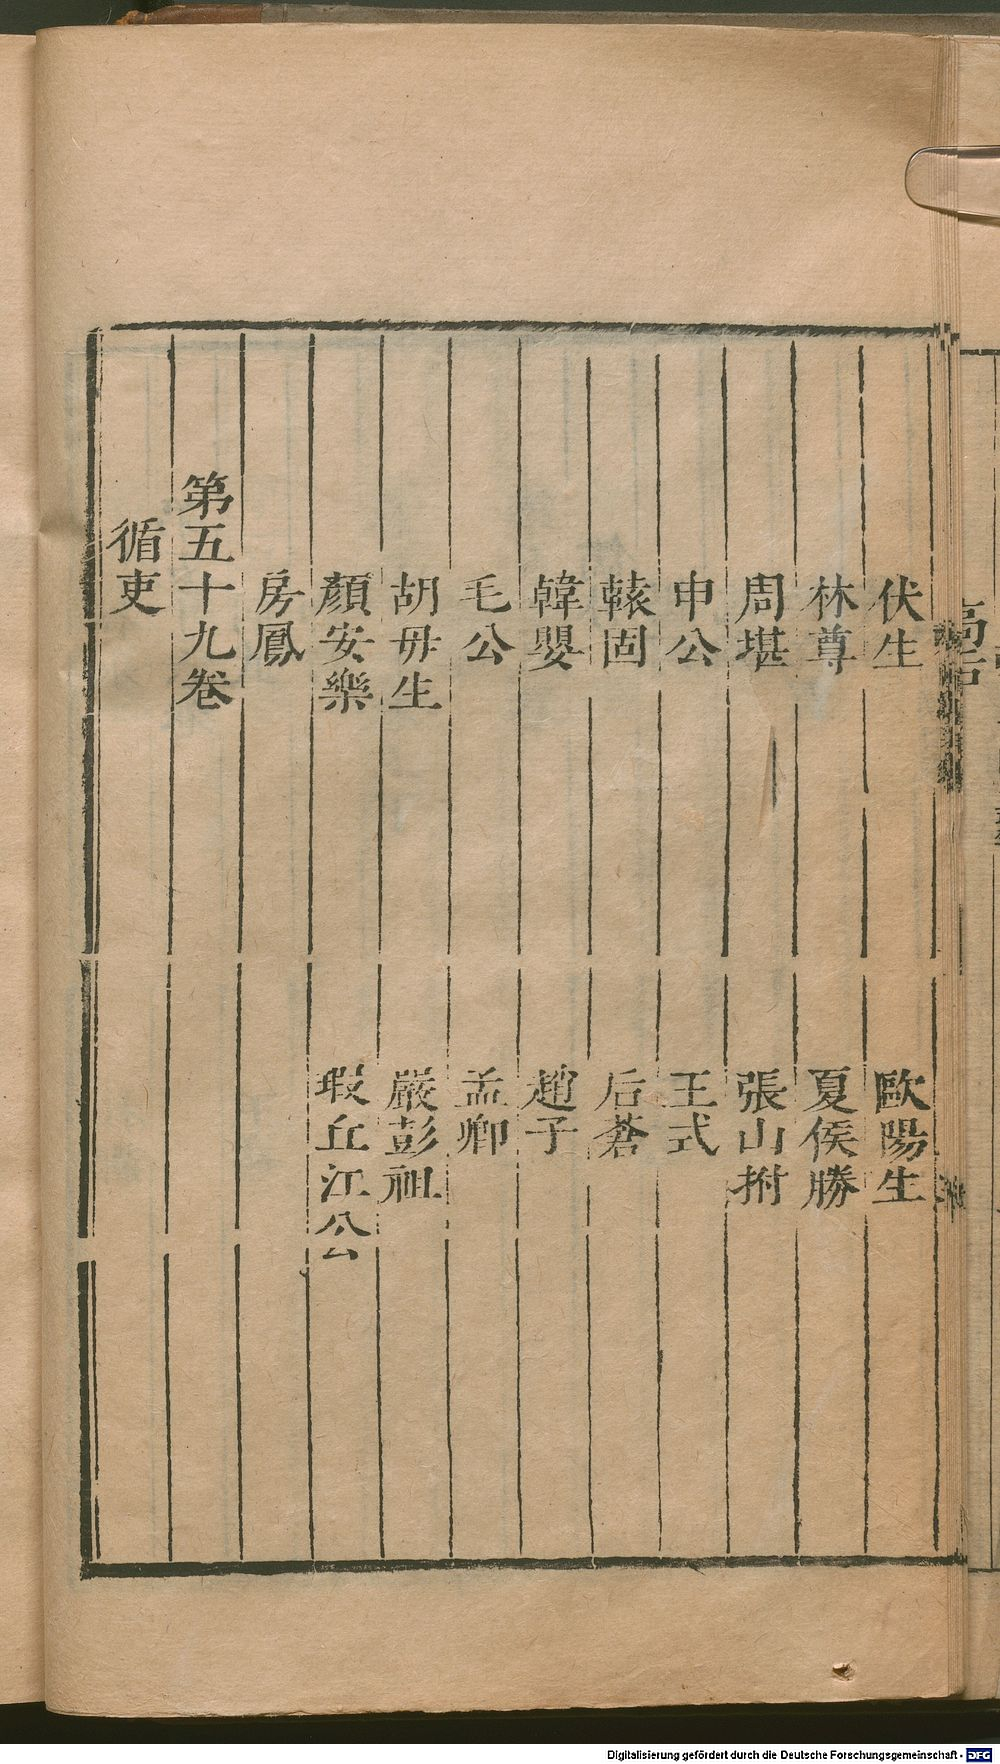 伏生 歐陽生
林尊 夏侯勝
周堪 張山拊
申公 王式
轅固 后蒼
韓嬰 趙子
毛公 孟卿
胡毋生 嚴彭祖
顏安樂 瑕丘江公
房鳳
第五十九卷
循吏
Digitalisierung gefördert durch die Deutsche Forschungsgemeinschaft - DFG